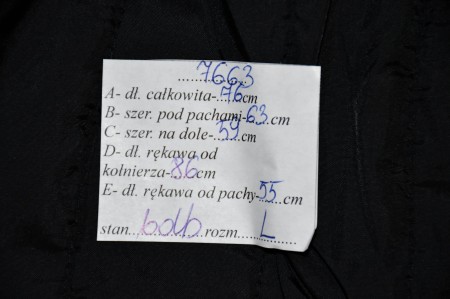 7663
A- dł. całkowita-76cm
B- szer. pod pachami-63cm
C- szer. na dole-59cm
D- dł. rękawa od
kołnierza-86cm
E- dł. rękawa od pachy-55cm
stan bdb rozm. L